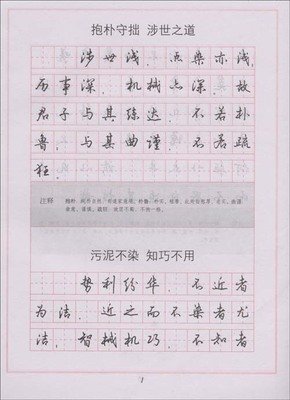 抱朴守拙 涉世之道
涉世浅，点染亦浅，
历事深，机械亦深。故
君子与其练达，不若朴
鲁，与其曲谨，不若疏
狂。
注释
污泥不染 知巧不用
势利纷华，不近者
为洁，近之而不染者尤
洁；智械机巧，不知者